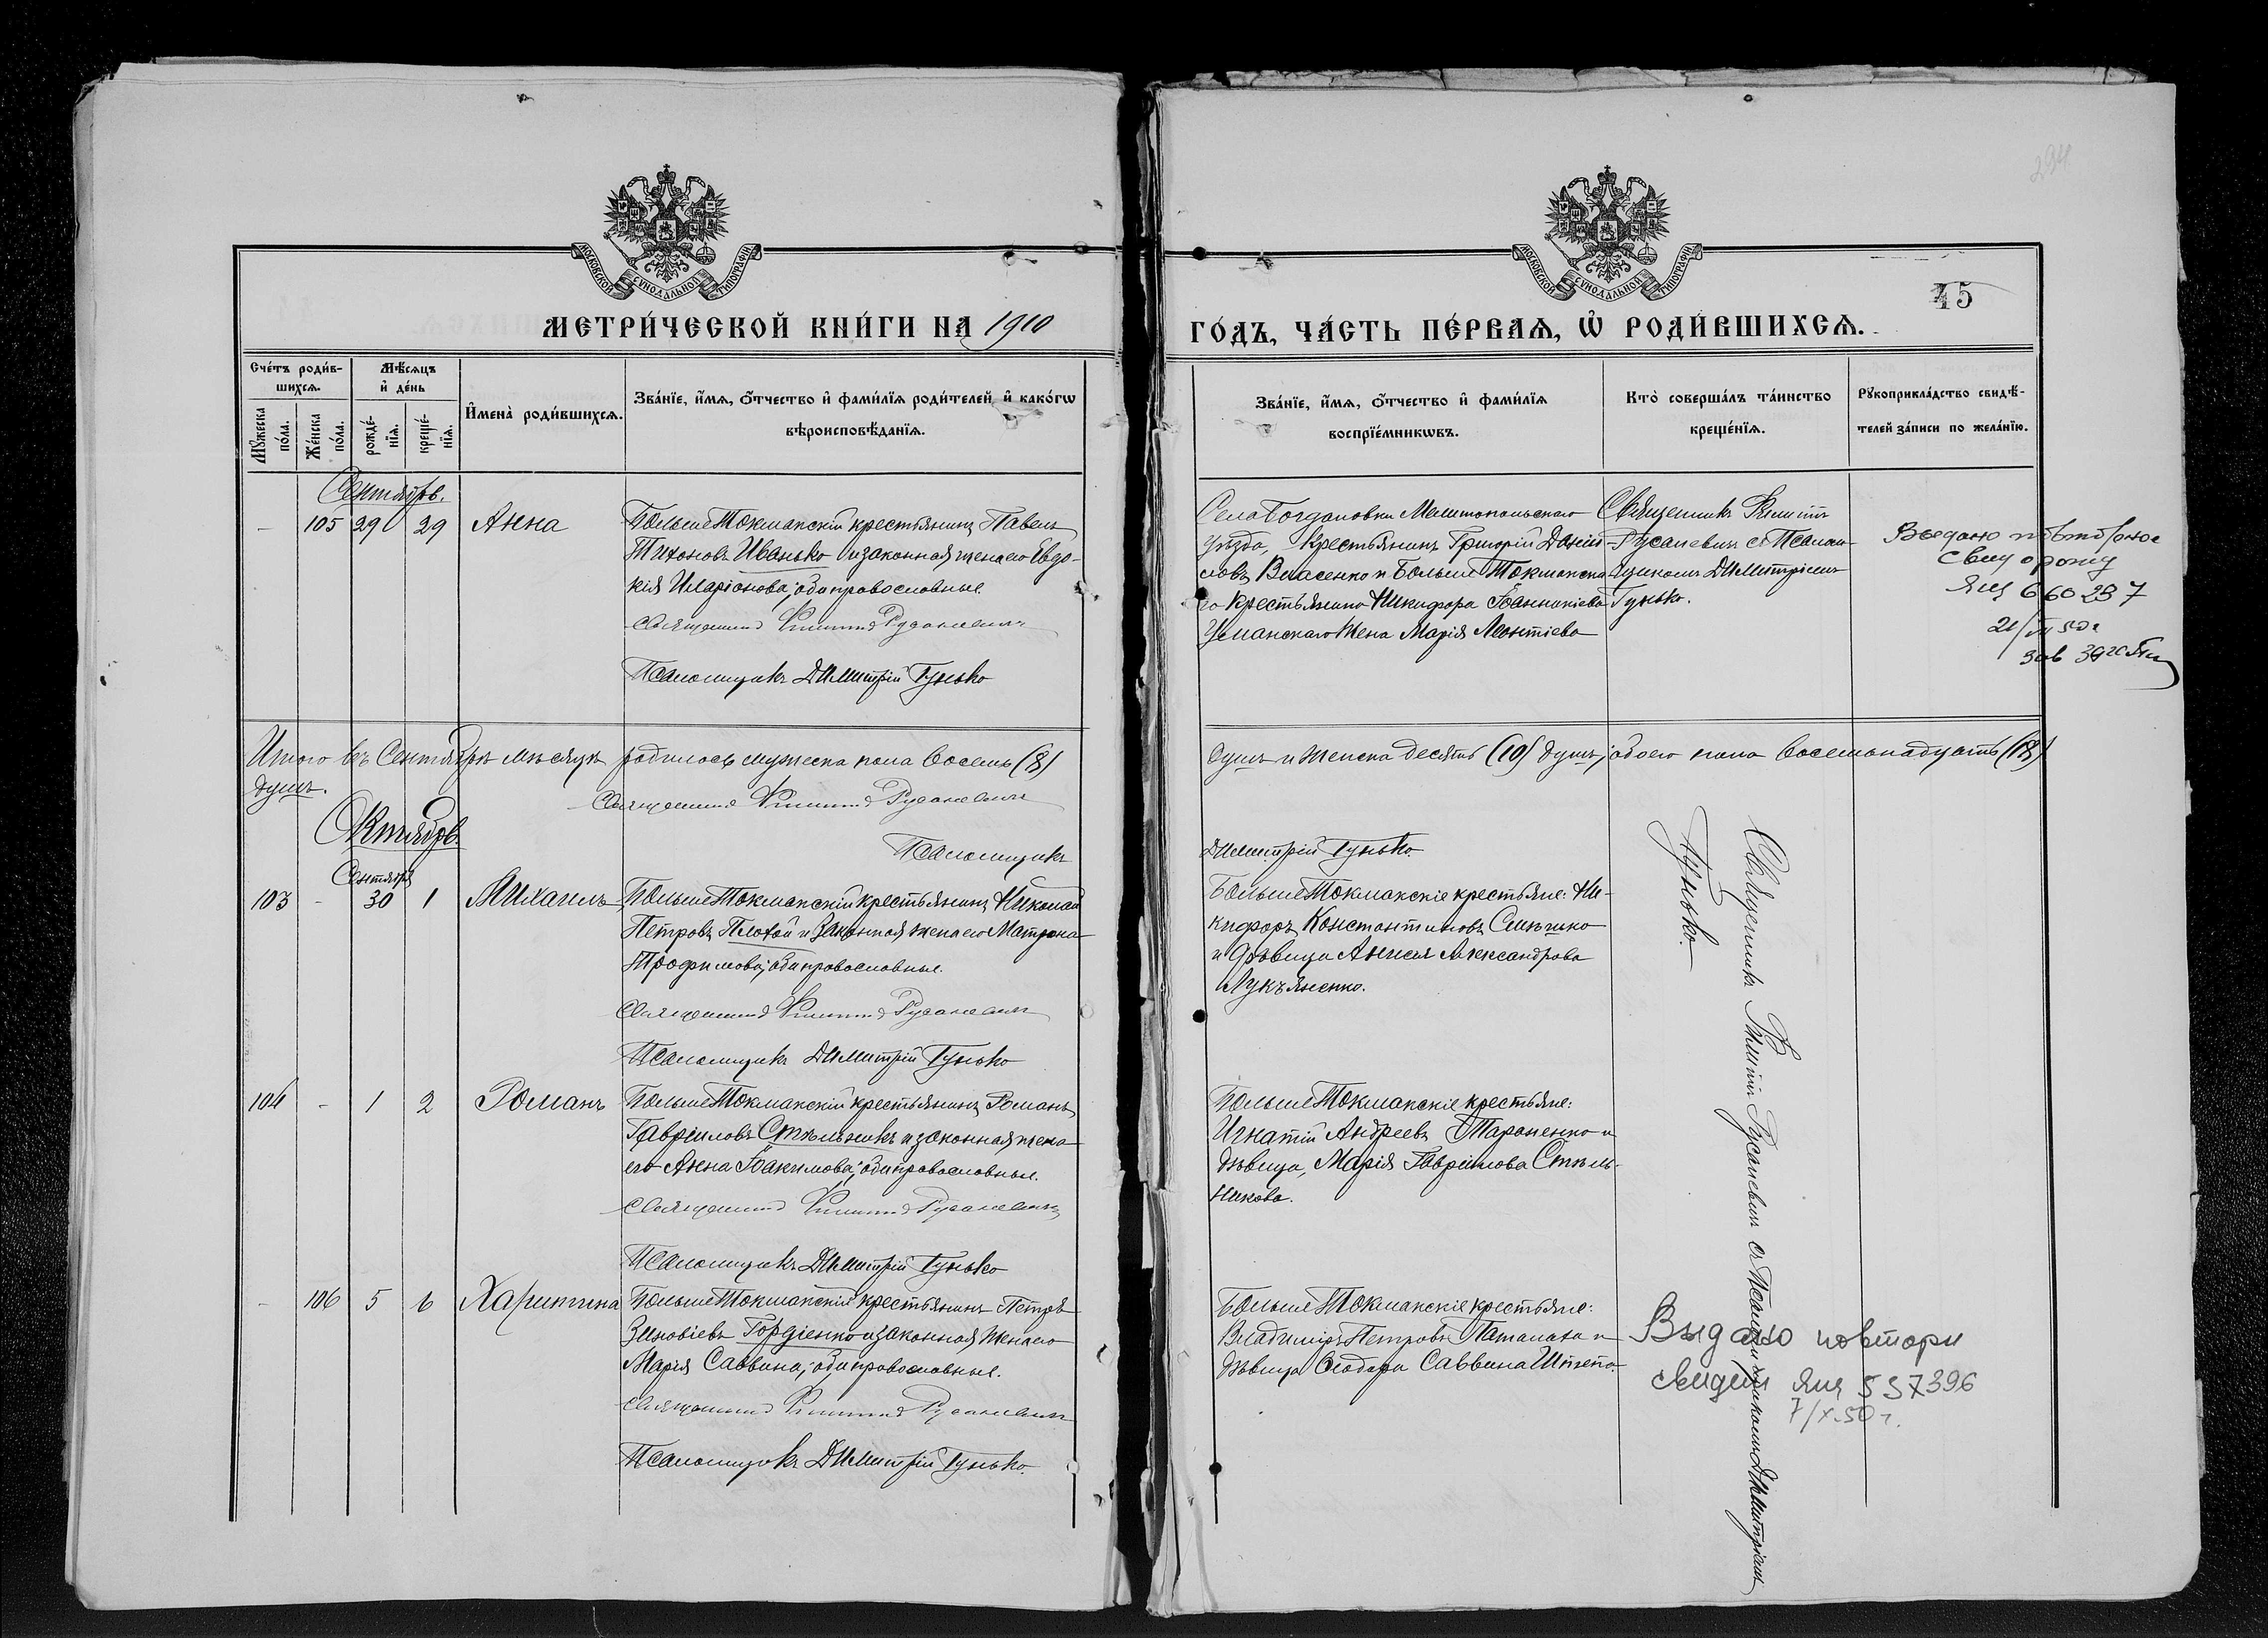 294
МОСКОВСКОЙ СѴНОДАЛЬНОЙ ТИПОГРАФІИ
МОСКОВСКОЙ СѴНОДАЛЬНОЙ ТИПОГРАФІИ
45
МЕТРИ́ЧЕСКОЙ КНИ́ГИ НА 1910
ГО́ДЪ, ЧА́СТЬ ПЕ́РВАѦ, Ѡ҆ РОДИ́ВШИХСѦ.
Сче́тъ роди́в-
шихсѧ.
Мꙋ́жеска
по́ла.
Же́нска
по́ла.
Мѣ́сѧцъ
и҆ де́нь
рожде́-
нїѧ.
креще́-
нїѧ.
И҆мена̀ роди́вшихсѧ.
Зва́нїе, и҆́мѧ, ѻ҆́тчество и҆ фами́лїѧ роди́телей, и҆ како́гѡ
вѣроисповѣ́данїѧ.
Зва́нїе, и҆́мѧ, ѻ҆́тчество и҆ фами́лїѧ
воспрїе́мникѡвъ.
Кто̀ соверша́лъ та́инство
креще́нїѧ.
Рꙋкоприкла́дство свидѣ́-
телей за́писи по жела́нїю.
Сентябрь.
- 105 29 29 Анна
Больше Токмакскій крестьянинъ Павелъ
Тихоновъ Иванько и законная жена его Евдо-
кія Иларіонова; оба православные.
Священникъ Русаневичъ
Псаломщикъ Димитрій Гунько
Села Богдановки Мелитопольскаго
уѣзда, крестьянинъ Григорій Даніи-
ловъ Власенко и Больше Токмакска-
го крестьянина Никифора Іоанникіева
Усманскаго жена Марія Леонтіева
Священникъ
Русаневичъ съ Псалом-
щикомъ Димитріемъ
Гунько.
Выдано повторное
свид о рожд
660237
Итого въ Сентябрѣ мѣсяцѣ родилось мужеска пола восемь (8)
душъ.
душъ и женска десять (10) душъ; обоего пола восемьнадцать (18)
Священникъ Русаневичъ
Псаломщикъ
Димитрій Гунько.
Октябрь
Сентября
103 - 30 1 Михаилъ
Больше Токмакскій крестьянинъ Николай
Петровъ Плохой и законная жена его Матрона
Трофимова; оба православные.
Священникъ Русаневичъ
Псаломщикъ Димитрій Гунько
Больше Токмакскіе крестьяне: Ни-
кифоръ Константиновъ
и дѣвица Александрова
Лукьяненко.
104 - 1 2 Романъ
Больше Токмакскій крестьянинъ Романъ
Гавріиловъ Стѣльникъ и законная жена
его Анна Іоакимова; оба православные.
Священникъ Русаневичъ
Псаломщикъ Димитрій Гунько
Больше Токмакскіе крестьяне:
Игнатій Андреевъ Тараненко и
дѣвица Марія Гавріилова Стѣль-
никова.
- 106 5 6 Харитина
Больше Токмакскій крестьянинъ Петръ
Зиновіевъ Гордіенко и законная жена его
Марія Саввина; оба православные.
Священникъ Русаневичъ
Псаломщикъ Димитрій Гунько.
Больше Токмакскіе крестьяне:
Владиміръ Петровъ Паталаха и
дѣвица Ѳеодора Саввина Штепа.
Священникъ Русаневичъ съ Псаломщикомъ Димитріемъ
Гунько.
Выдано повторн
свидет 537396
7/X.50 г.